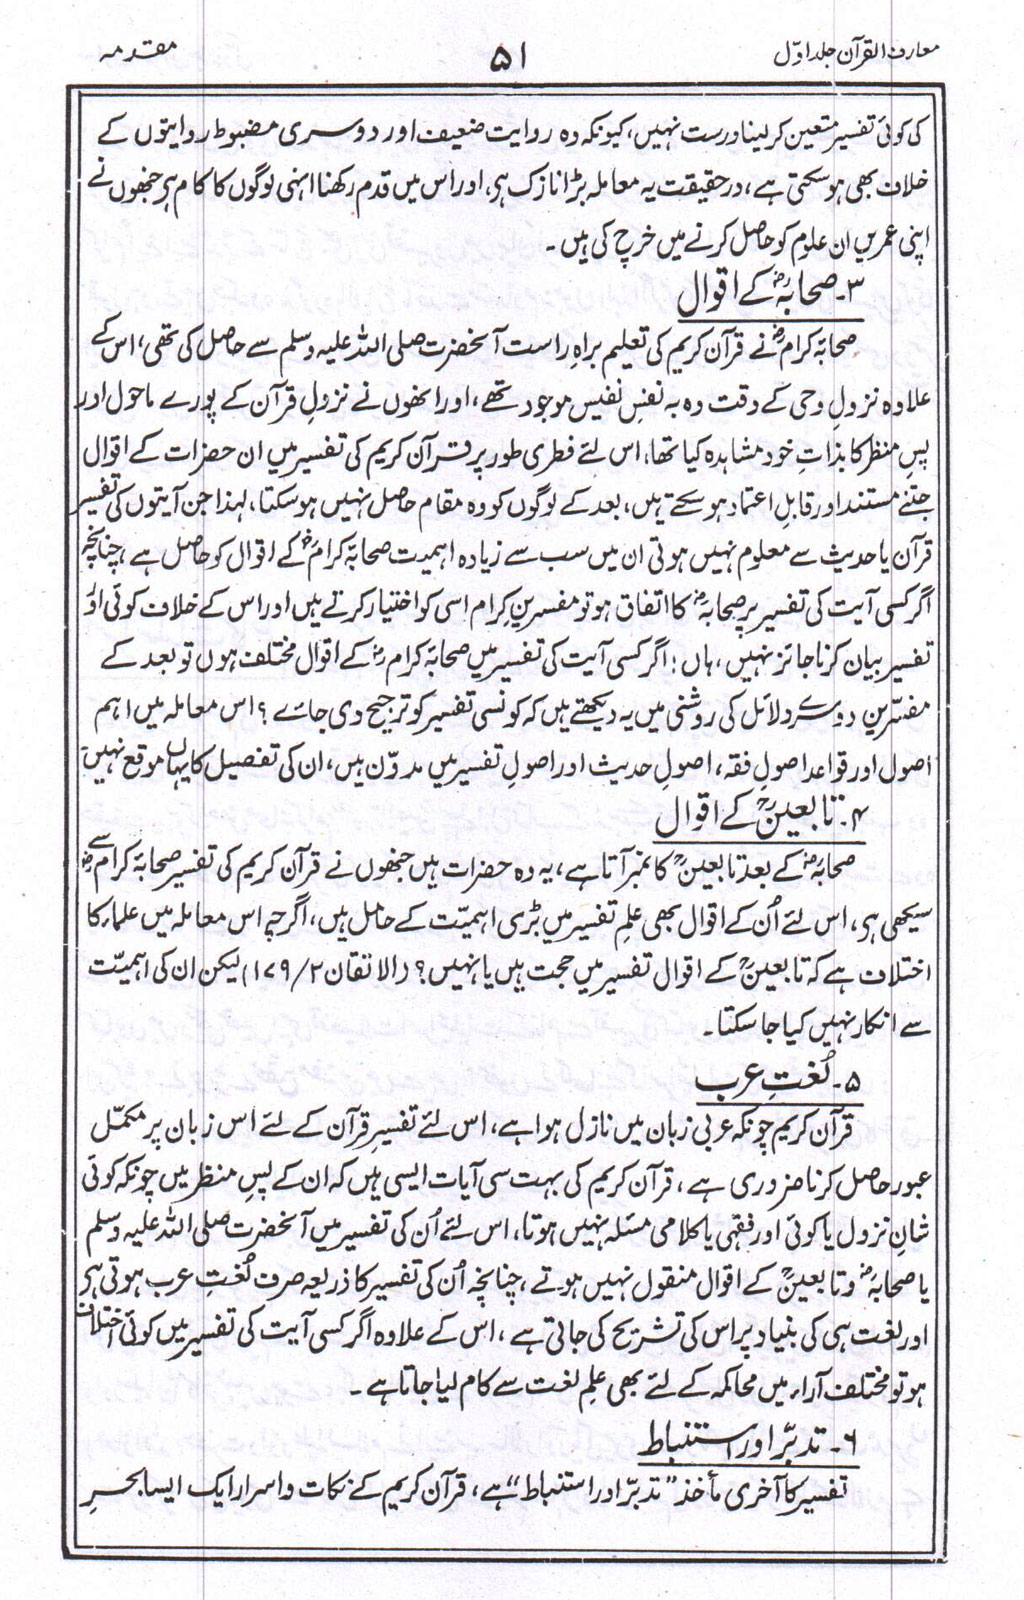 معارف القرآن جلد اوّل
۵۱
مقدمہ
کی کوئی تفسیر متعین کرلینا درست نہیں، کیونکہ وہ روایت ضعیف اور دوسری مضبوط روایتوں کے
خلاف بھی ہوسکتی ہے، درحقیقت یہ معاملہ بڑا نازک ہی، اور اس میں قدم رکھنا انہی لوگوں کا کام ہی جنھوں نے
اپنی عمریں ان علوم کو حاصل کرنے میں خرچ کی ہیں۔
۳۔ صحابہؓ کے اقوال
صحابۂ کرامؓ نے قرآن کریم کی تعلیم براہِ راست آنحضرت صلی اللہ علیہ وسلم سے حاصل کی تھی، اس کے
علاوہ نزولِ وحی کے وقت وہ بہ نفسِ نفیس موجود تھے، اور انھوں نے نزولِ قرآن کے پورے ماحول اور
پسِ منظر کا بذاتِ خود مشاہدہ کیا تھا، اس لئے فطری طور پر قرآن کریم کی تفسیر میں ان حضرات کے اقوال
جتنے مستند اور قابلِ اعتماد ہوسکتے ہیں، بعد کے لوگوں کو وہ مقام حاصل نہیں ہوسکتا، لہذا جن آیتوں کی تفسیر
قرآن یا حدیث سے معلوم نہیں ہوتی ان میں سب سے زیادہ اہمیت صحابۂ کرامؓ کے اقوال کو حاصل ہے، چنانچہ
اگر کسی آیت کی تفسیر پر صحابہؓ کا اتفاق ہو تو مفسرینِ کرام اسی کو اختیار کرتے ہیں اور اس کے خلاف کوئی اور
تفسیر بیان کرنا جائز نہیں، ہاں! اگر کسی آیت کی تفسیر میں صحابۂ کرامؓ کے اقوال مختلف ہوں تو بعد کے
مفسّرین دوسرے دلائل کی روشنی میں یہ دیکھتے ہیں کہ کونسی تفسیر کو ترجیح دی جائے؟ اس معاملہ میں اہم
اصول اور قواعد اصولِ فقہ، اصولِ حدیث اور اصولِ تفسیر میں مدوّن ہیں، ان کی تفصیل کا یہاں موقع نہیں
۴۔ تابعینؒ کے اقوال
صحابہؓ کے بعد تابعینؒ کا نمبر آتا ہے، یہ وہ حضرات ہیں جنھوں نے قرآن کریم کی تفسیر صحابۂ کرامؓ سے
سیکھی ہی، اس لئے اُن کے اقوال بھی علمِ تفسیر میں بڑی اہمیّت کے حامل ہیں، اگرچہ اس معاملہ میں علماء کا
اختلاف ہے کہ تابعینؒ کے اقوال تفسیر میں حجت ہیں یا نہیں؟ (الاتقان ۲/۱۷۹) لیکن ان کی اہمیّت
سے انکار نہیں کیا جاسکتا۔
۵۔ لُغتِ عرب
قرآن کریم چونکہ عربی زبان میں نازل ہوا ہے، اس لئے تفسیرِ قرآن کے لئے اس زبان پر مکمّل
عبور حاصل کرنا ضروری ہے، قرآن کریم کی بہت سی آیات ایسی ہیں کہ ان کے پسِ منظر میں چونکہ کوئی
شانِ نزول یا کوئی اور فقہی یا کلامی مسئلہ نہیں ہوتا، اس لئے اُن کی تفسیر میں آنحضرت صلی اللہ علیہ وسلم
یا صحابہؓ و تابعینؒ کے اقوال منقول نہیں ہوتے، چنانچہ اُن کی تفسیر کا ذریعہ صرف لُغتِ عرب ہوتی ہی
اور لغت ہی کی بنیاد پر اس کی تشریح کی جاتی ہے، اس کے علاوہ اگر کسی آیت کی تفسیر میں کوئی اختلاف
ہو تو مختلف آراء میں محاکمہ کے لئے بھی علمِ لغت سے کام لیا جاتا ہے۔
۶۔ تدبّر اور استنباط
تفسیر کا آخری مأخذ ”تدبّر اور استنباط“ ہے، قرآن کریم کے نکات و اسرار ایک ایسا بحرِ